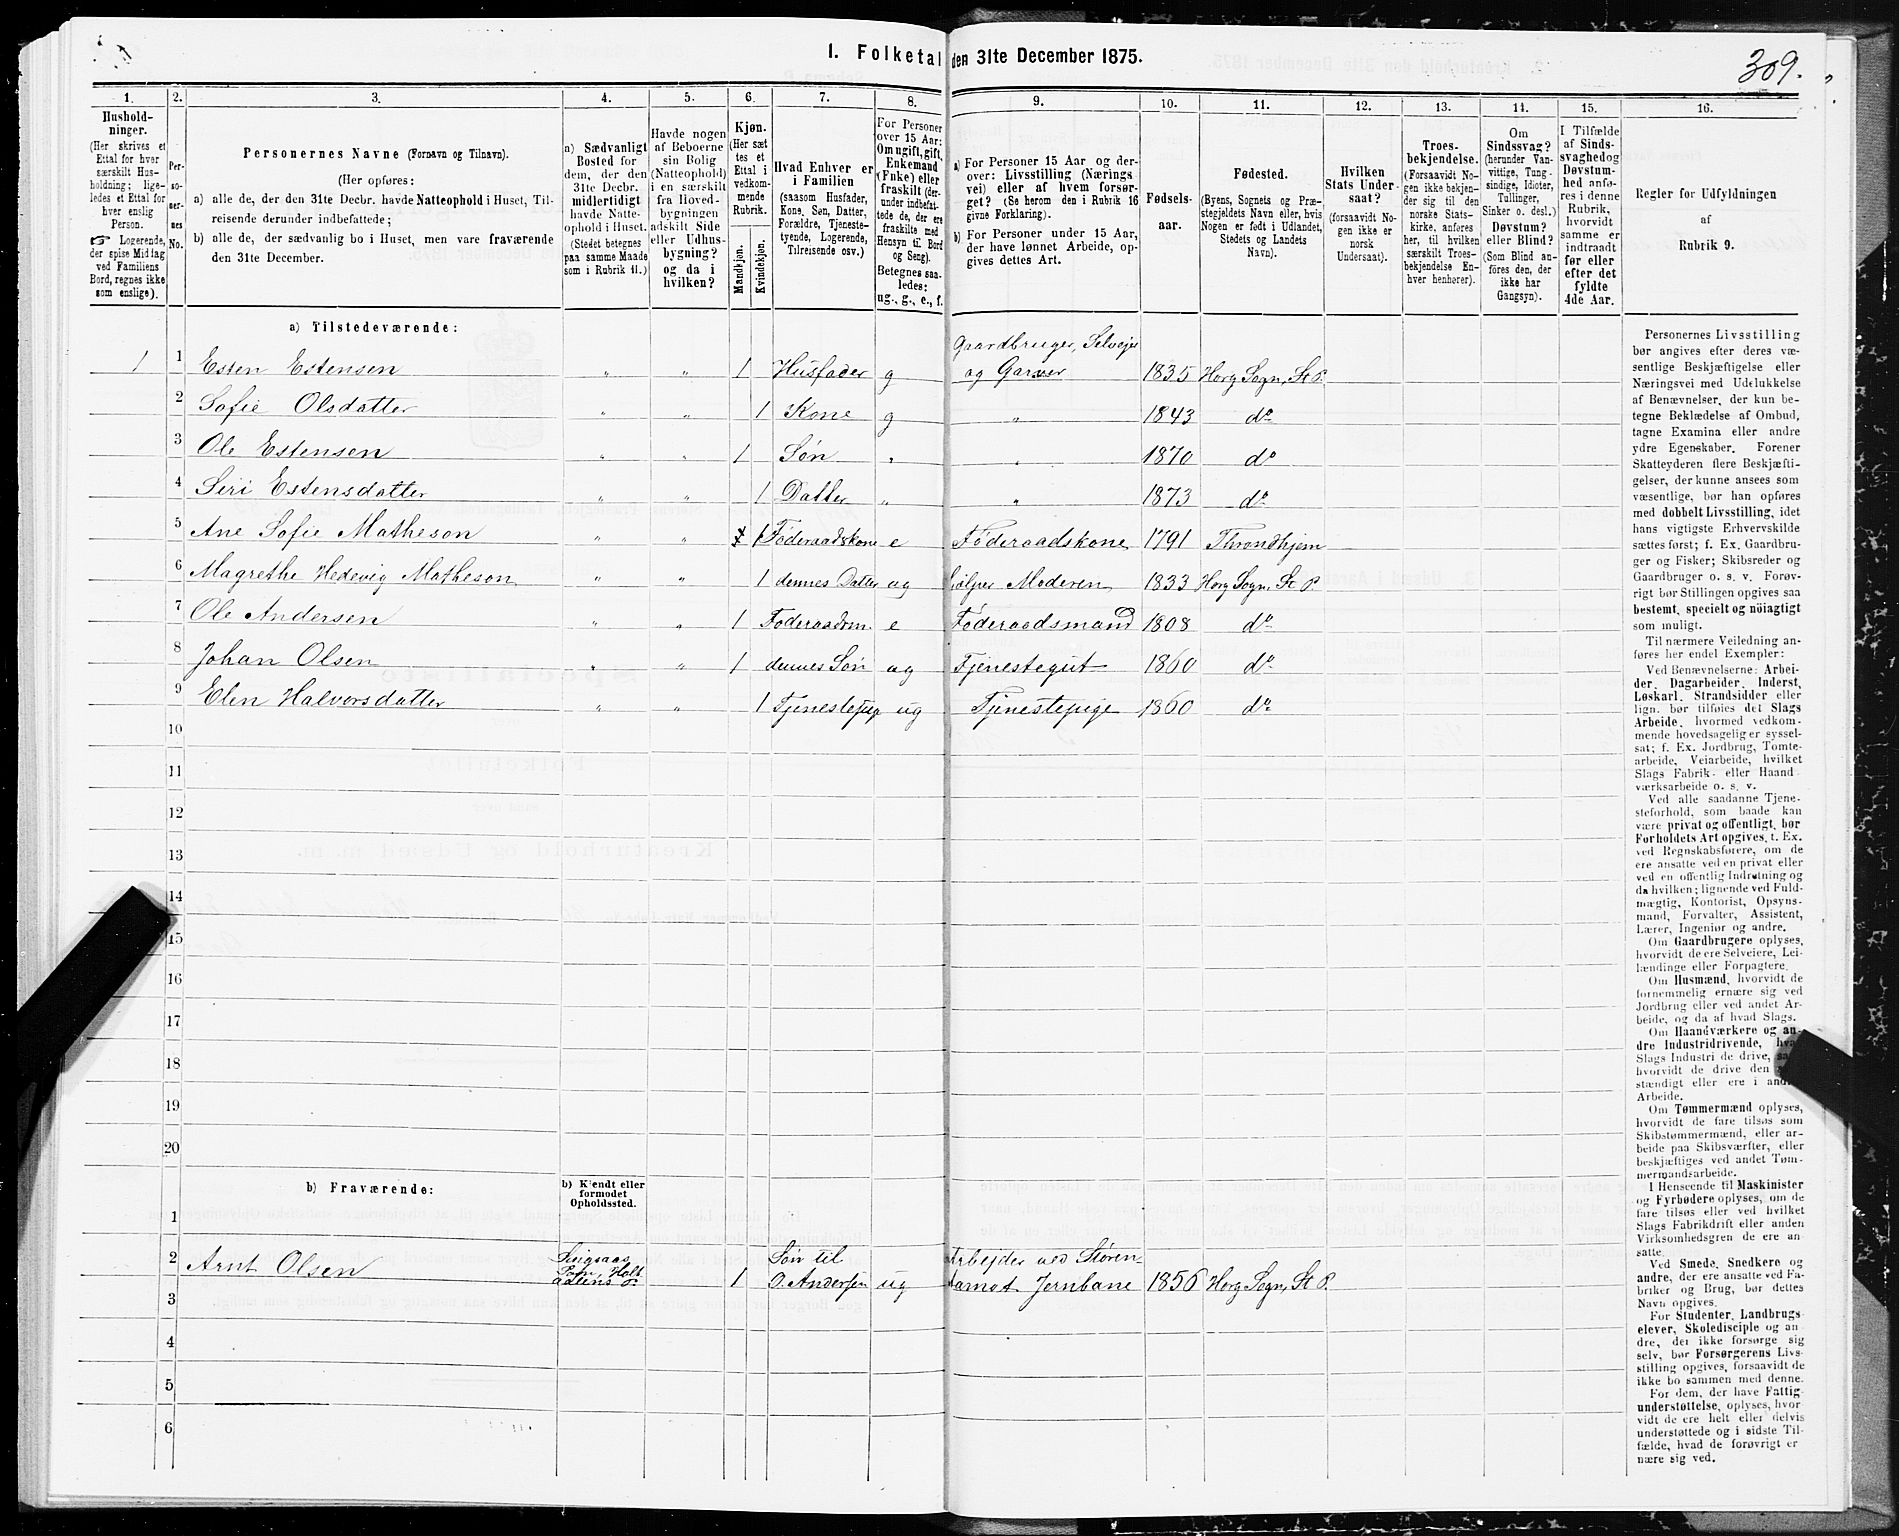 1. Folketal den 31te December 1875.
309.
1. 2. 3. 4. 5. 6. 7. 8. 9. 10. 11. 12. 13. 14. 15. 16.
Hushold-
ninger.
(Her skrives et
Ettal for hver
særskilt Hus-
holdning; lige-
ledes et Ettal for
hver enslig
Person.
☞ Logerende,
der spise Middag
ved Familiens
Bord, regnes ikke
som enslige).
Per-
so-
ner-
nes
No.
Personernes Navne (Fornavn og Tilnavn).
(Her opføres:
a) alle de, der den 31te Decbr. havde Natteophold i Huset, Til-
reisende derunder indbefattede;
b) alle de, der sædvanlig bo i Huset, men vare fraværende
den 31te December.
a) Sædvanligt
Bosted for
dem, der den
31te Decbr.
midlertidigt
havde Natte-
ophold i Huset.
(Stedet betegnes
paa samme Maade
som i Rubrik 11.)
Havde nogen
af Beboerne
sin Bolig
(Natteophold)
i en særskilt
fra Hoved-
bygningen
adskilt Side
eller Udhus-
bygning?
og da i
hvilken?
Kjøn.
(Her sæt
tes et
Ettal i
vedkom-
mende
Rubrik.
Mandkjøn.
Kvindekjøn.
Hvad Enhver er
i Familien
(saasom Husfader,
Kone, Søn, Datter,
Forældre, Tjeneste-
tyende, Logerende,
Tilreisende osv.)
For Personer
over 15 Aar:
Om ugift, gift,
Enkemand
(Enke) eller
fraskilt (der-
under indbefat-
tede de, der ere
fraskilte med
Hensyn til Bord
og Seng).
Betegnes saa-
ledes:
ug., g., e., f.
a) For Personer 15 Aar og der-
over: Livsstilling (Nærings
vei) eller af hvem forsør-
get? (Se herom den i Rubrik 16
givne Forklaring).
b) For Personer under 15 Aar,
der have lønnet Arbeide, op-
gives dettes Art.
Fødsels-
aar.
Fødested.
(Byens, Sognets og Præ-
stegjeldets Navn eller, hvis
Nogen er født i Udlandet,
Stedets og Landets
Navn).
Hvilken
Stats Under-
saat?
(forsaavidt No-
gen ikke er
norsk
Undersaat).
Troes-
bekjendelse.
(Forsaavidt No-
gen ikke bekjen-
der sig til den
norske Stats-
kirke, anføres
her, til hvilken
særskilt Troes-
bekjendelse En-
hver henhører).
Om
Sindssvag?
(herunder Van-
vittige, Tung-
sindige, Idioter,
Tullinger,
Sinker o. desl.)
Døvstum?
eller Blind?
(Som Blind an-
føres den, der
ikke har
Gangsyn).
I Tilfælde
af Sinds-
svaghed og
Døvstum-
hed anfø-
res i denne
Rubrik,
hvorvidt
samme er
indtraadt
før eller
efter det
fyldte
4de Aar.
Regler for Udfyldningen
af
Rubrik 9.
a) Tilstedeværende:
Gaardbruger, Selvejer
1 1 Esten Estensen " " 1 Husfader g og Garver 1835 Horg Sogn, St P.
2 Sofie Olsdatter " " 1 Kone g " 1843 do
3 Ole Estensen " " 1 Søn " " 1870 do
4 Seri Estensdatter " " 1 Datter " " 1873 do
5 Ane Sofie Matheson " " 1 Føderaadskone e Føderaadskone 1791 Throndhjem
6 Magrethe Hedevig Matheson " " 1 dennes Datter ug hjælper Moderen 1833 Horg Sogn, St P.
7 Ole Andersen " " 1 Føderaadsm. e Føderaadsmand 1808 do
8 Johan Olsen " " 1 dennes Søn ug Tjenestegut 1860 do
9 Elen Halvorsdatter " " 1 Tjenestepig ug Tjenestepige 1860 do
10
11
12
13
14
15
16
17
18
19
20
b) Fraværende:
b) Kjendt eller
formodet
Opholdssted.
1
2 Arnt Olsen Singsaas 1 Søn til O. Andersen ug Arbejder ved Støren-
Aamot Jernbane 1856 Horg Sogn, St P.
3
4
5
6
Personernes Livsstilling
bør angives efter deres væ-
sentlige Beskjæftigelse eller
Næringsvei med Udelukkelse
af Benævnelser, der kun be-
tegne Beklædelse af Ombud,
tagne Examina eller andre
ydre Egenskaber. Forener
Skatteyderen flere Beskjæfti-
gelser, der kunne ansees som
væsentlige, bør han opføres
med dobbelt Livsstilling, idet
hans vigtigste Erhvervskilde
sættes først; f. Ex. Gaardbru-
ger og Fisker; Skibsreder og
Gaardbruger o. s. v. Forøv-
rigt bør Stillingen opgives saa
bestemt, specielt og nöiagtigt
som muligt.
Til nærmere Veiledning an-
føres her endel Exempler:
Ved Benævnelserne: Arbei-
der, Dagarbeider, Inderst,
Løskarl, Strandsidder eller
lign. bør tilføies det Slags
Arbeide, hvormed vedkom-
mende hovedsagelig er syssel-
sat; f. Ex. Jordbrug, Tomte-
arbeide, Veiarbeide, hvilket
Slags Fabrik- eller Haand
værksarbeide o. s. v.
Ved alle saadanne Tjene-
steforhold, som baade kan
være privat og offentligt, bør
Forholdets Art opgives, t. Ex.
ved Regnskabsførere, om de
ere ansatte ved en privat eller
ved en offentlig Indretning og
da hvilken; lignende ved Fuld-
mægtig, Kontorist, Opsyns-
mand, Forvalter, Assistent,
Lærer, Ingeniør og andre.
Om Gaardbrugere oplyses,
hvorvidt de ere Selveiere, Lei-
lændinge eller Forpagtere.
Om Husmænd, hvorvidt de
fornemmelig ernære sig ved
Jordbrug eller ved andet Ar-
beide, og da af hvad Slags.
Om Haandværkere og an-
dre Industridrivende,
Slags Industri de drive,
hvorvidt de drive den
stændigt eller ere i
Arbeide.
Om Tømmermænd oplyses,
hvorvidt de fare tilsøs som
Skibstømmermænd, eller ar-
beide paa Skibsværfter, eller
beskjæftiges ved andet Tøm-
mermandsarbeide.
I Henseende til Maskinister
og Fyrbødere oplyses, om de
fare tilsøs eller ved hvilket
Slags Fabrikdrift eller anden
Virksomhedsgren de ere an-
satte.
Ved Smede, Snedkere og
andre, der ere ansatte ved Fa-
briker og Brug, bør dettes
Navn opgives.
For Studenter, Landbrugs-
elever, Skoledisciple og an-
dre, der ikke forsørge sig
selv, bør Forsørgerens Livs-
stilling opgives, forsaavidt de
ikke bo sammen med denne.
For dem, der have Fattig-
understøttelse, oplyses, hvor-
vidt de ere helt eller delvis
understøttede og i sidste Til-
fælde, hvad de forøvrigt er-
nære sig ved.